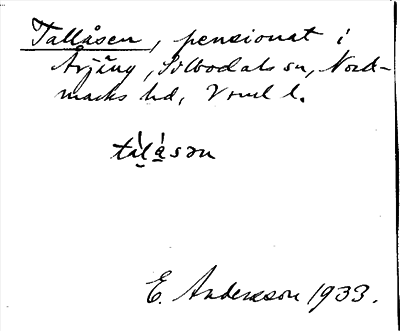 Tallåsen, pensionat i
Årjäng, Silbodals sn, Nord-
marks hd, Vrml l.
tàlá̱sən
E. Andersson 1933.